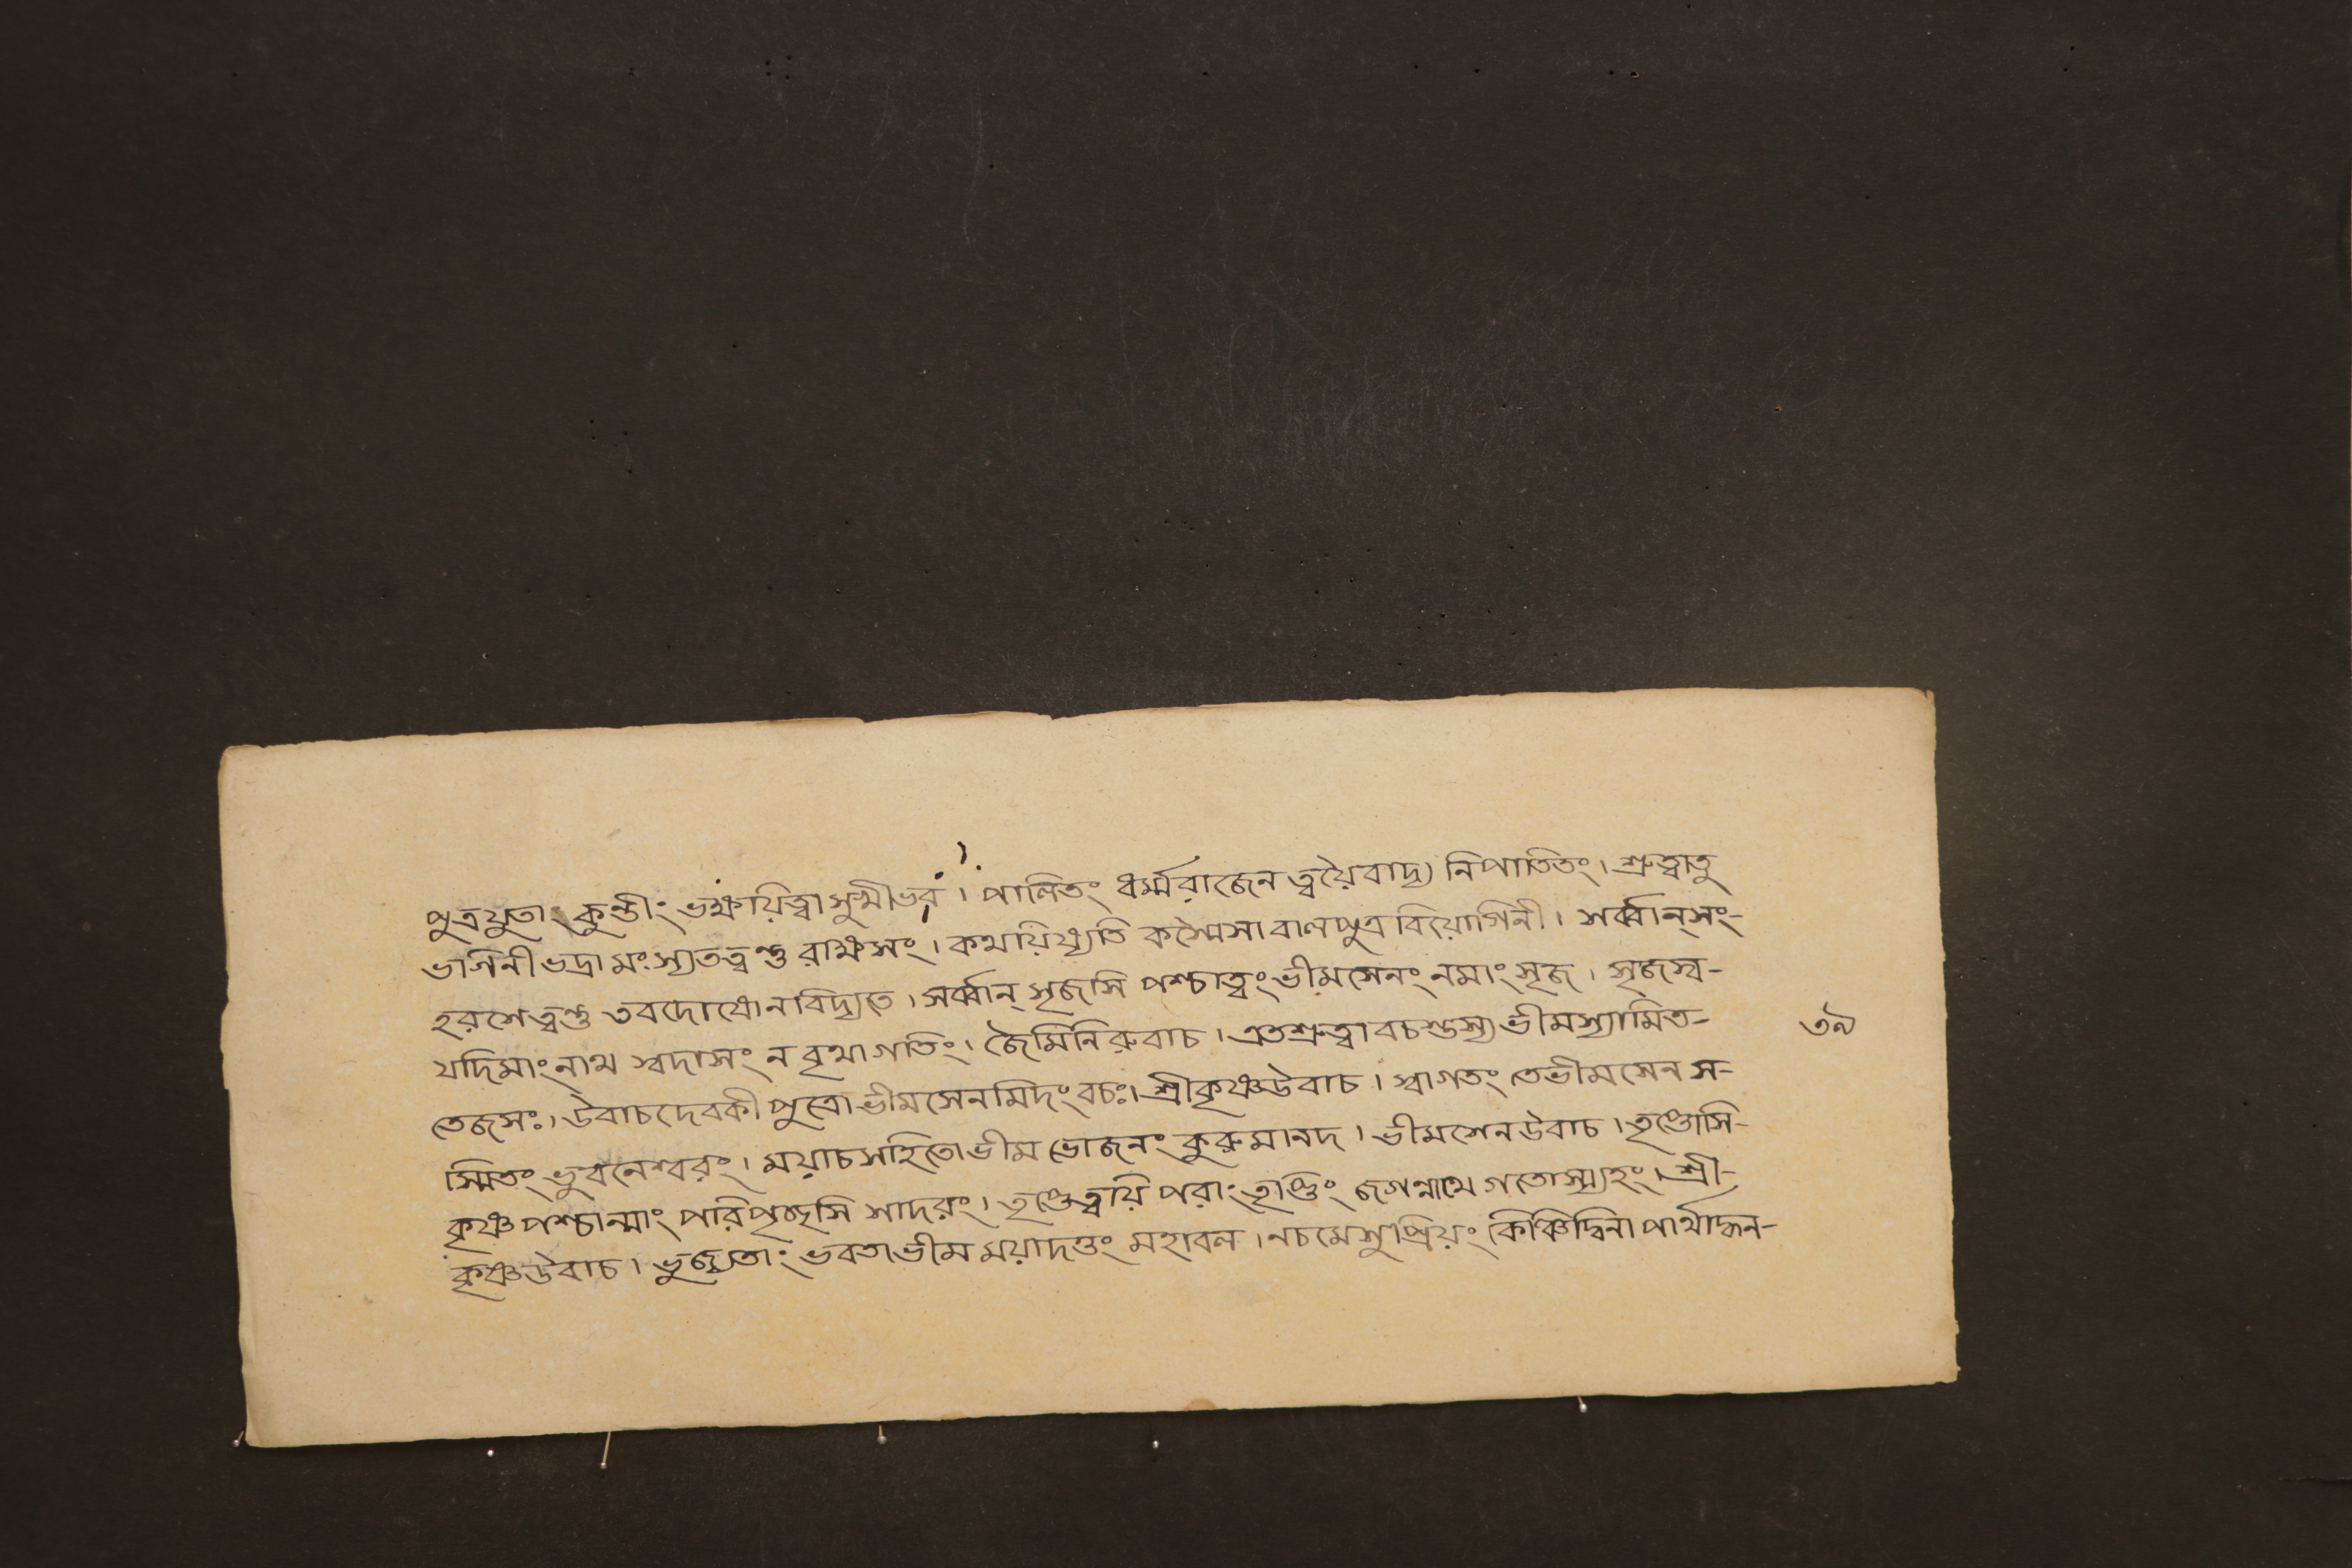 পুত্রযুতাং কুন্তীং ভক্ষয়িত্বা সুখীভব । পালিতং ধর্ম্মরাজেন ত্বয়ৈবাদ্য নিপাতিতং । শ্রুত্বাতু
ভাগিনী ভদ্রা মৎস্যতত্বন্তু রাক্ষসং । কথয়িষ্যতি কস্মৈসা বালপুত্র বিয়োগিনী । সর্ব্বান্ সং-
হরশে ত্বন্তু তবদোষোন বিদ্যতে । সর্ব্বান্ সৃজসি পশ্চাত্বং ভীমসেনং নমাং সৃজ । সৃজস্ব-
যদিমাং নাথ স্বদাসং ন বৃথাগতিং । জৈমিনিরুবাচ । এতশ্রুত্বা বচস্তস্য ভীমস্যামিত- ৩৯
তেজসঃ । উবাচ দেবকী পুত্রো ভীমসেনমিদং বচঃ । শ্রীকৃষ্ণউবাচ । স্বাগতং তে ভীমসেন স-
স্মিতং ভুবনেশ্বরং । ময়াচ সহিতো ভীম ভোজনং কুরু মানদ । ভীমশেন উবাচ । তৃপ্তোসি-
কৃষ্ণ পশ্চান্মাং পরিপৃচ্ছসি শাদরং । তৃপ্তেত্বয়ি পরাং তৃপ্তিং জগন্নাথে গতোস্ম্যহং । শ্রী-
কৃষ্ণউবাচ । ভুজ্যতাং ভবতা ভীম ময়াদত্তং মহাবল । নচমে সুপ্রিয়ং কিঞ্চিদ্বিনা পার্থাদ্ধন-